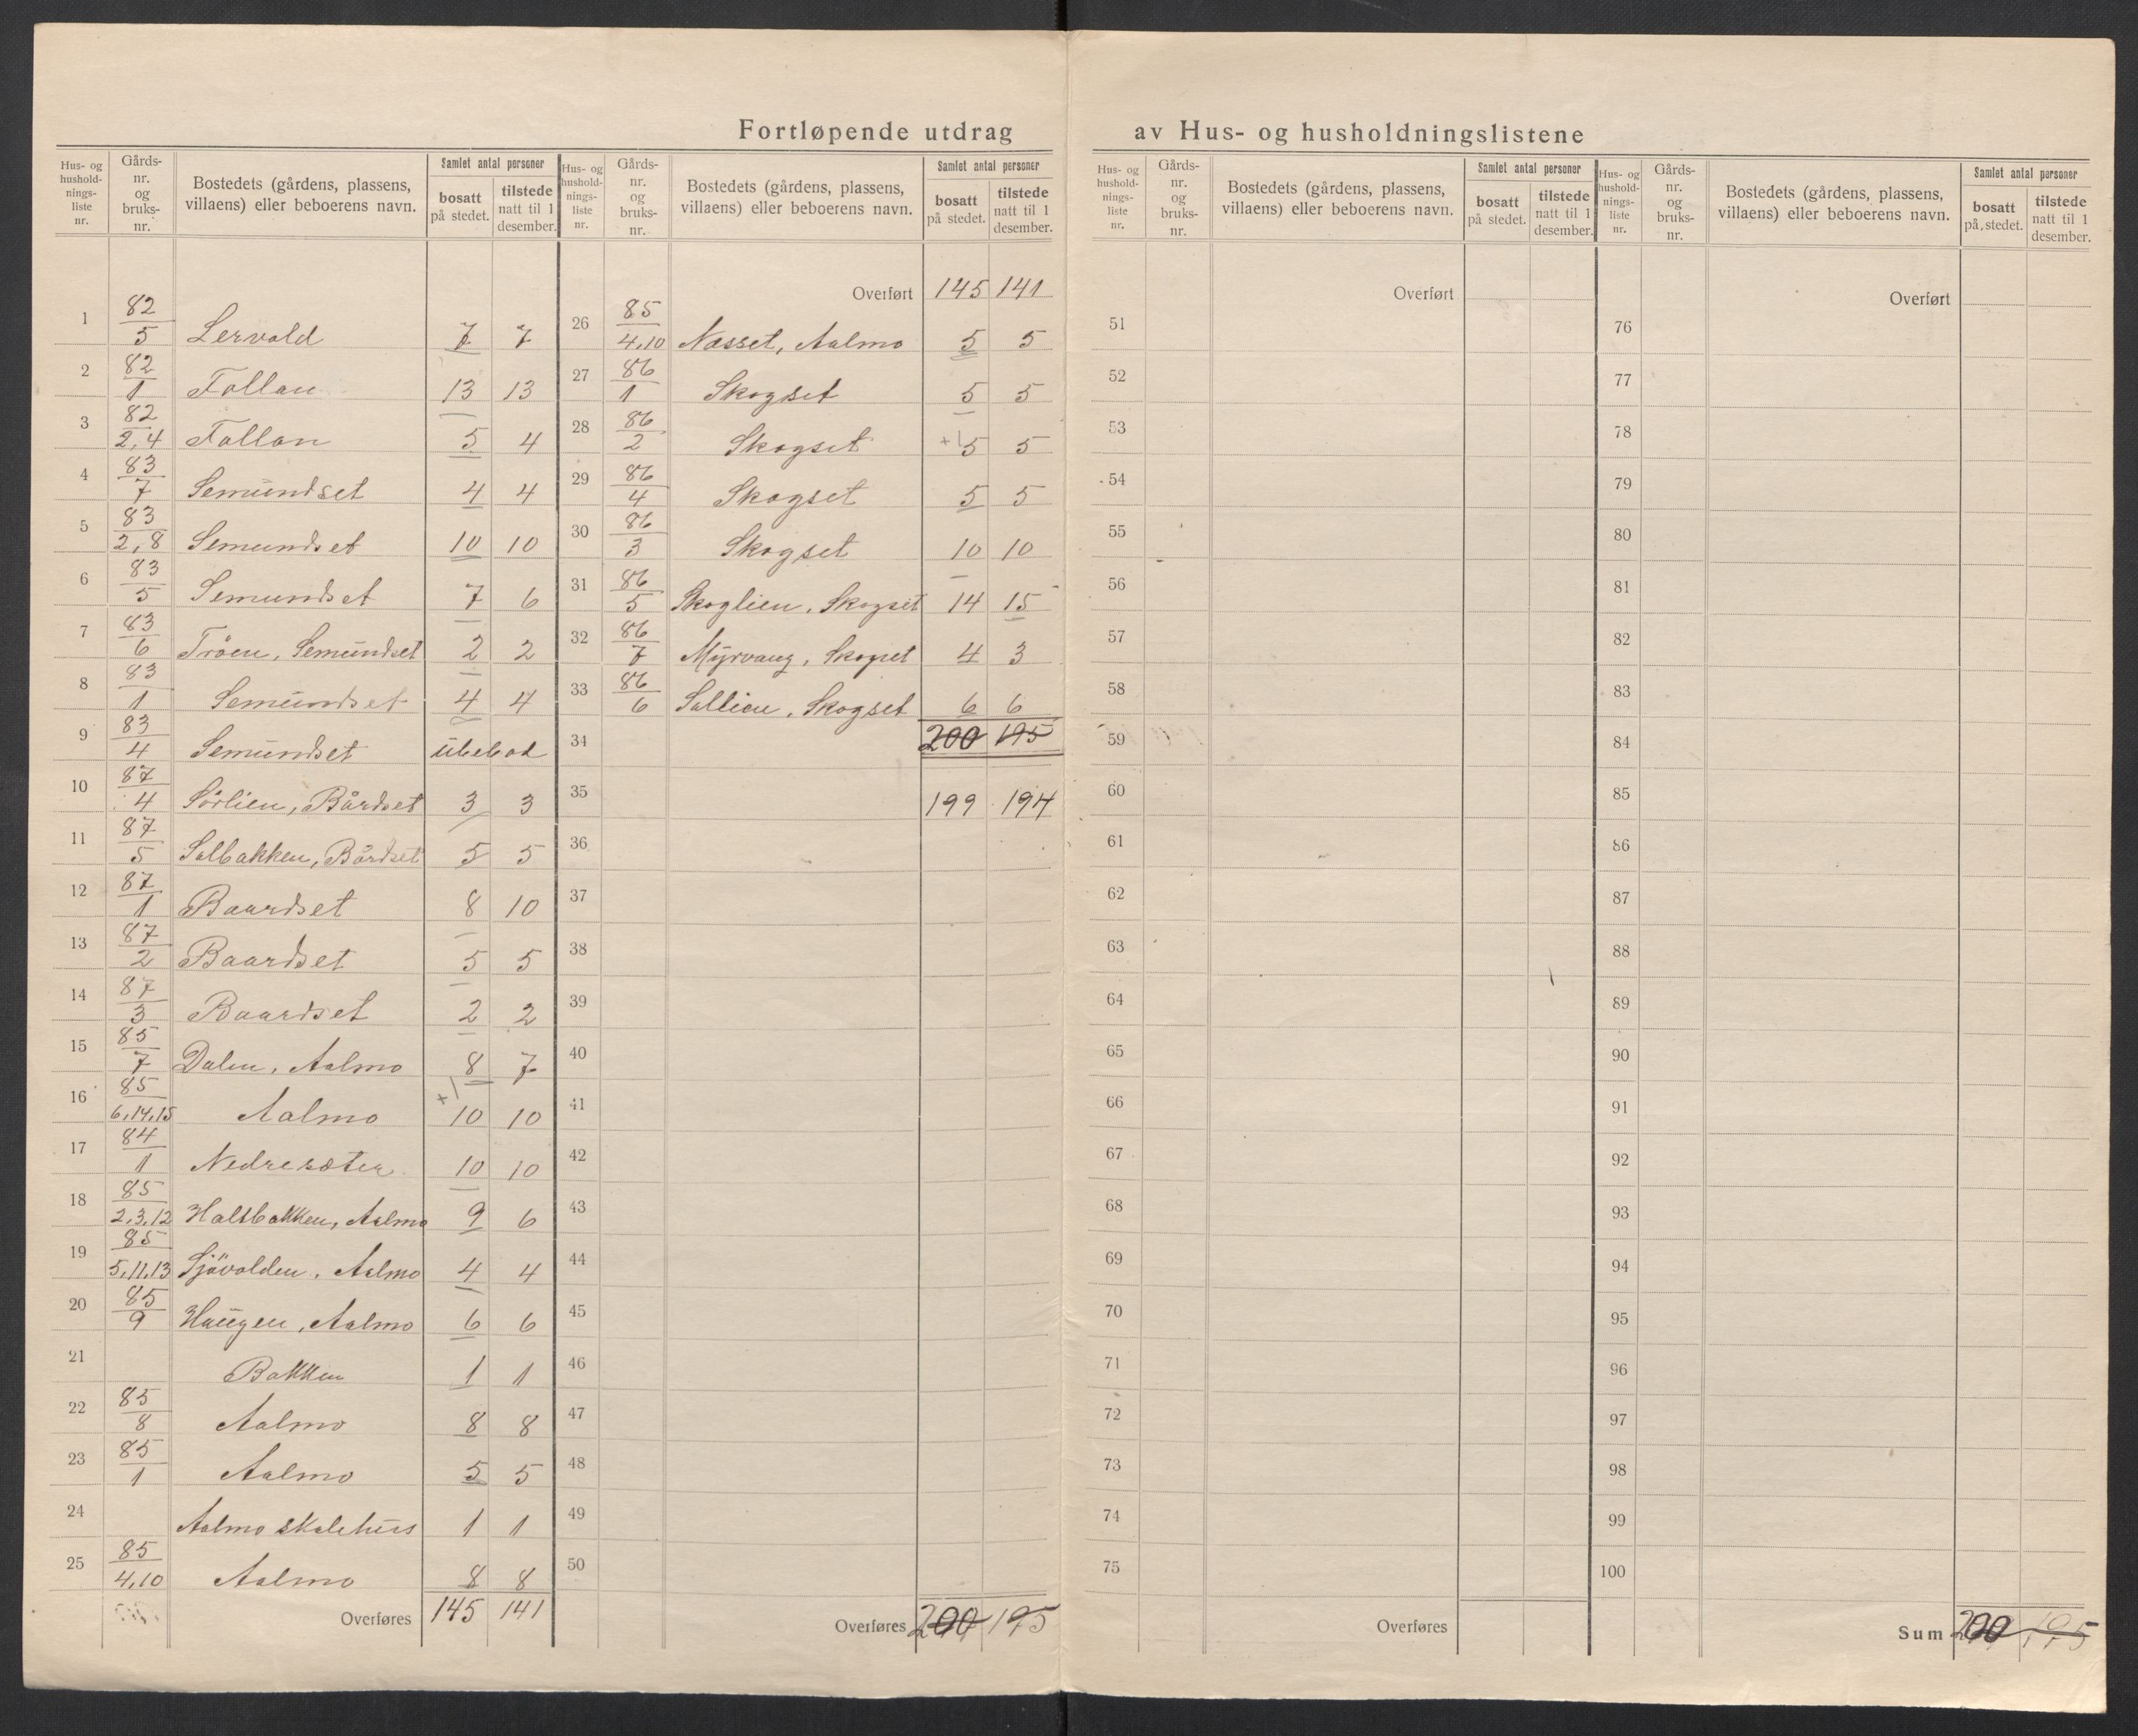 Fortløpende utdrag av Hus- og husholdningslistene
Hus- og husholdningsliste nr. | Gårds-nr. og bruks-nr. | Bostedets (gårdens, plassens, villaens) eller beboerens navn. | Samlet antal personer | bosatt på stedet. | tilstede natt til 1 desember.
1 82/5 Lervold 7 7
2 82/1 Follan 13 13
3 82/2,4 Follan 5 4
4 83/7 Semundset 4 4
5 83/2,8 Semundset 10 10
6 83/5 Semundset 7 6
7 83/6 Trøen, Semundset 2 2
8 83/1 Semundset 4 4
9 83/4 Semundset ubebod
10 87/4 Sörlien, Bårdset 3 3
11 87/5 Solbakken, Bårdset 5 5
12 87/1 Baardset 8 10
13 87/2 Baardset 5 5
14 87/3 Baardset 2 2
15 85/7 Dalen, Aalmo 8 7
16 85/6,14,15 Aalmo +1 10 10
17 84/1 Nedresæter 10 10
18 85/2,3,12 Holtbakken, Aalmo 9 6
19 85/5,11,13 Sjövolden, Aalmo 4 4
20 85/9 Haugen, Aalmo 6 6
21 Bakken 1 1
22 85/8 Aalmo 8 8
23 85/1 Aalmo 5 5
24 Aalmo skolehus 1 1
25 85/4,10 Aalmo 8 8
Overføres 145 141
Hus- og husholdningsliste nr. | Gårds-nr. og bruks-nr. | Bostedets (gårdens, plassens, villaens) eller beboerens navn. | Samlet antal personer | bosatt på stedet. | tilstede natt til 1 desember.
Overført 145 141
26 85/4,10 Næsset, Aalmo 5 5
27 86/1 Skogset 5 5
28 86/2 Skogset +1 5 5
29 86/4 Skogset 5 5
30 86/3 Skogset 10 10
31 86/5 Skoglien, Skogset 14 15
32 86/7 Myrvang, Skogset 4 3
33 86/6 Sollien, Skogset 6 6
34 200 195
35 199 194
36
37
38
39
40
41
42
43
44
45
46
47
48
49
50
Overføres 200 195
Hus- og husholdningsliste nr. | Gårds-nr. og bruks-nr. | Bostedets (gårdens, plassens, villaens) eller beboerens navn. | Samlet antal personer | bosatt på stedet. | tilstede natt til 1 desember.
Overført
51
52
53
54
55
56
57
58
59
60
61
62
63
64
65
66
67
68
69
70
71
72
73
74
75
Overføres
Hus- og husholdningsliste nr. | Gårds-nr. og bruks-nr. | Bostedets (gårdens, plassens, villaens) eller beboerens navn. | Samlet antal personer | bosatt på stedet. | tilstede natt til 1 desember.
Overført
76
77
78
79
80
81
82
83
84
85
86
87
88
89
90
91
92
93
94
95
96
97
98
99
100
Sum 200 195